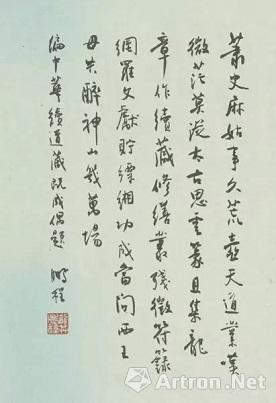 蕭史麻姑事久荒壺天道業嘆
微茫莫從太古思雲篆且集龍
章作續藏修繕叢殘徵符籙
網羅文獻貯縹緗功成當問西王
母共醉神山幾萬場
編中華續道藏既成偶題 鵬程
Artron.Net